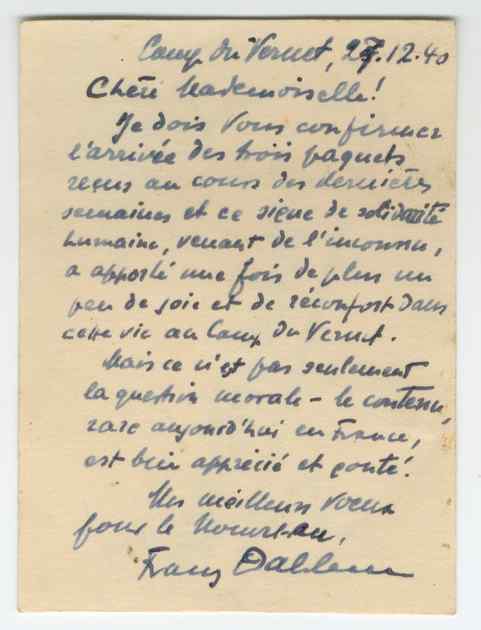 Camp du Vernet, 27.12.40
Chère Mademoiselle!
Je dois Vous confirmer
l'arrivée des trois paquets
reçus au cours des dernières
semaines et ce signe de solidarité
humaine, venant de l'inconnu,
a apporté une fois de plus un
peu de joie et de réconfort dans
cette vie au Camp du Vernet.
Mais ce n'est pas seulement
la question morale – le contenu,
rare aujourd'hui en France,
est bien apprécié et gouté.
Mes meilleurs voeux
pour le Nouvel an,
Franz Dahlem